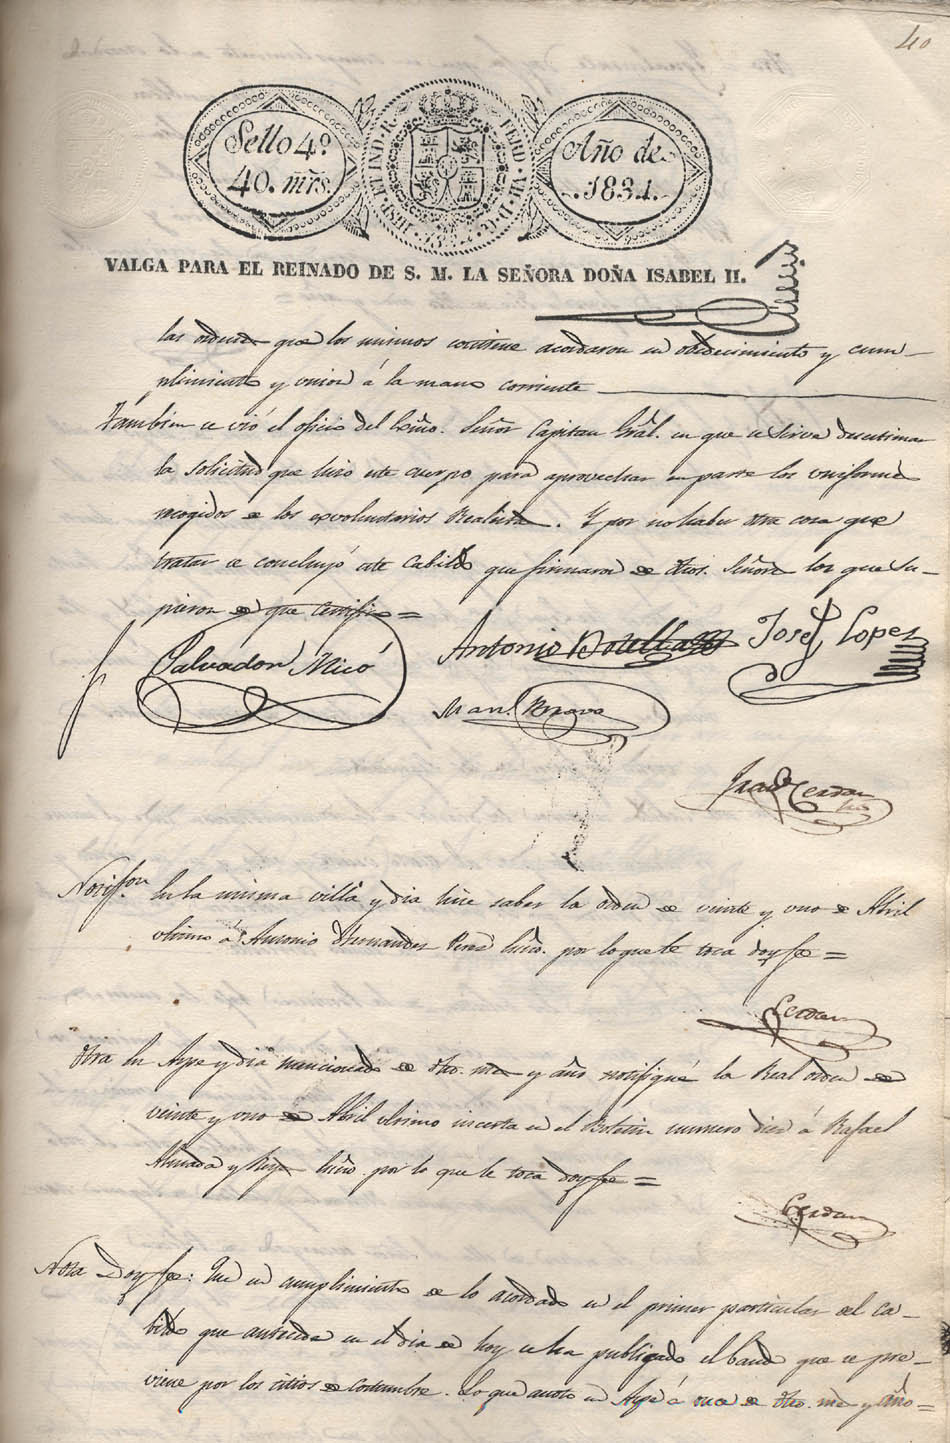 40
Sello 4º
40. mrs.
HISP. ET IND. R. FERD. VII. D. G.
Año de
1834.
VALGA PARA EL REINADO DE S. M. LA SEÑORA DOÑA ISABEL II.
las ordenes que los mismos contiene acordaron su obedecimiento y cum-
plimiento y union á la mano corriente
Tambien se vió el oficio del Exmo. Señor Capitan Gral. en que se sirve desestimar
la solicitud que hizo este cuerpo para aprovechar en parte los uniformes
recogidos de los exvoluntarios Realistas. Y por no haber otra cosa que
tratar se concluyó este Cabildo que firmaron de dhos. Señores los que su-
pieron de que certifico =
Salvador Micó
Antonio Botella
Josef Lopez
Man.l Bravo
Cerdan
En la misma villa y dia hice saber la orden de veinte y uno de Abril
ultimo á Antonio Hernandez Perez por lo que le toca doy fe =
Cerdan
Otra En Aspe y dia mencionado de dho. mes y año notifiqué la Real orden de
veinte y uno de Abril ultimo inserta en el Boletin numero diez á Rafael
Almada y por lo que le toca doy fe =
Cerdan
Nota Doy fe: Que en cumplimiento de lo acordado en el primer particular del ca-
bildo que antecede en el dia de hoy se ha publicado el bando que se pre-
viene por los sitios de costumbre. Lo que anoto en Aspe á once de dho. mes y año =